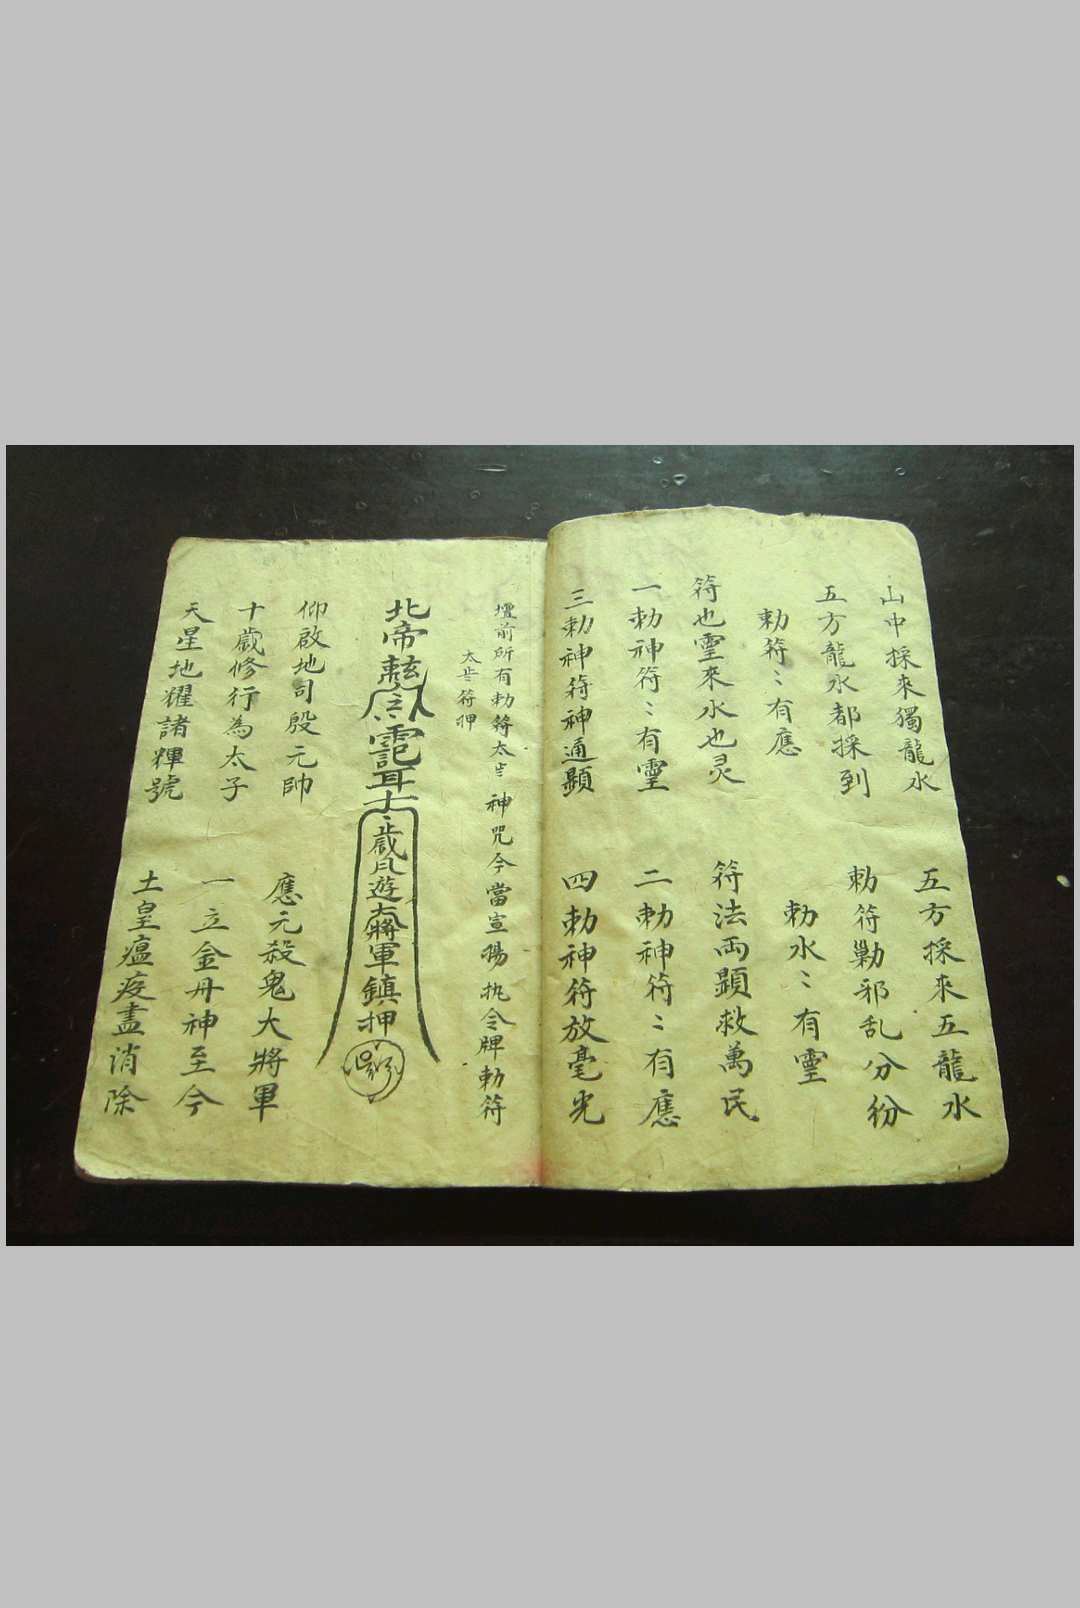 山中採來獨龍水 五方採來五龍水
五方龍水都採到 勅符剿邪乱分紛
勅符〻有應 勅水〻有霊
符也霊來水也灵 符法両顕救萬民
一勅神符〻有霊 二勅神符〻有應
三勅神符神通顕 四勅神符放毫光
壇前所有勅符太歩 神咒今當宣揚 执令牌勅符
太歩符押
北帝
歳
遊
將軍鎮押
仰啟地司殷元帥 應元殺鬼大將軍
十歲修行為太子 一立金丹神至今
天星地耀諸輝號 土皇瘟疫盡消除